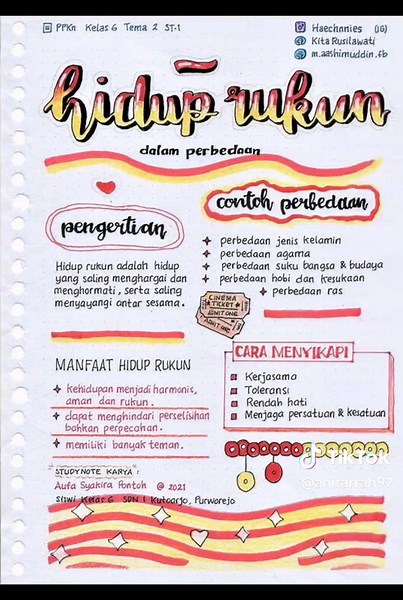 PPKn Kelas 6 Tema 2 ST-1
Haechnnies (IG)
Kita Rusilawati
m.aashimuddin.fb
hidup rukun
dalam perbedaan
pengertian
Hidup rukun adalah hidup
yang saling menghargai dan
menghormati, serta saling
menyayangi antar sesama.
contoh perbedaan
perbedaan jenis kelamin
perbedaan agama
perbedaan suku bangsa & budaya
perbedaan hobi dan kesukaan
perbedaan ras
CINEMA
TICKET
ADMIT ONE
ADMIT ONE
MANFAAT HIDUP RUKUN
kehidupan menjadi harmonis,
aman dan rukun.
dapat menghindari perselisihan
bahkan perpecahan.
memiliki banyak teman.
CARA MENYIKAPI
Kerjasama
Toleransi
Rendah hati
Menjaga persatuan & kesatuan
STUDYNOTE KARYA :
Aufa Syakira Pontoh @ 2021
Siswi Kelas 6 SDN 1 Kutoarjo, Purworejo
TikTok
@anisarrah97